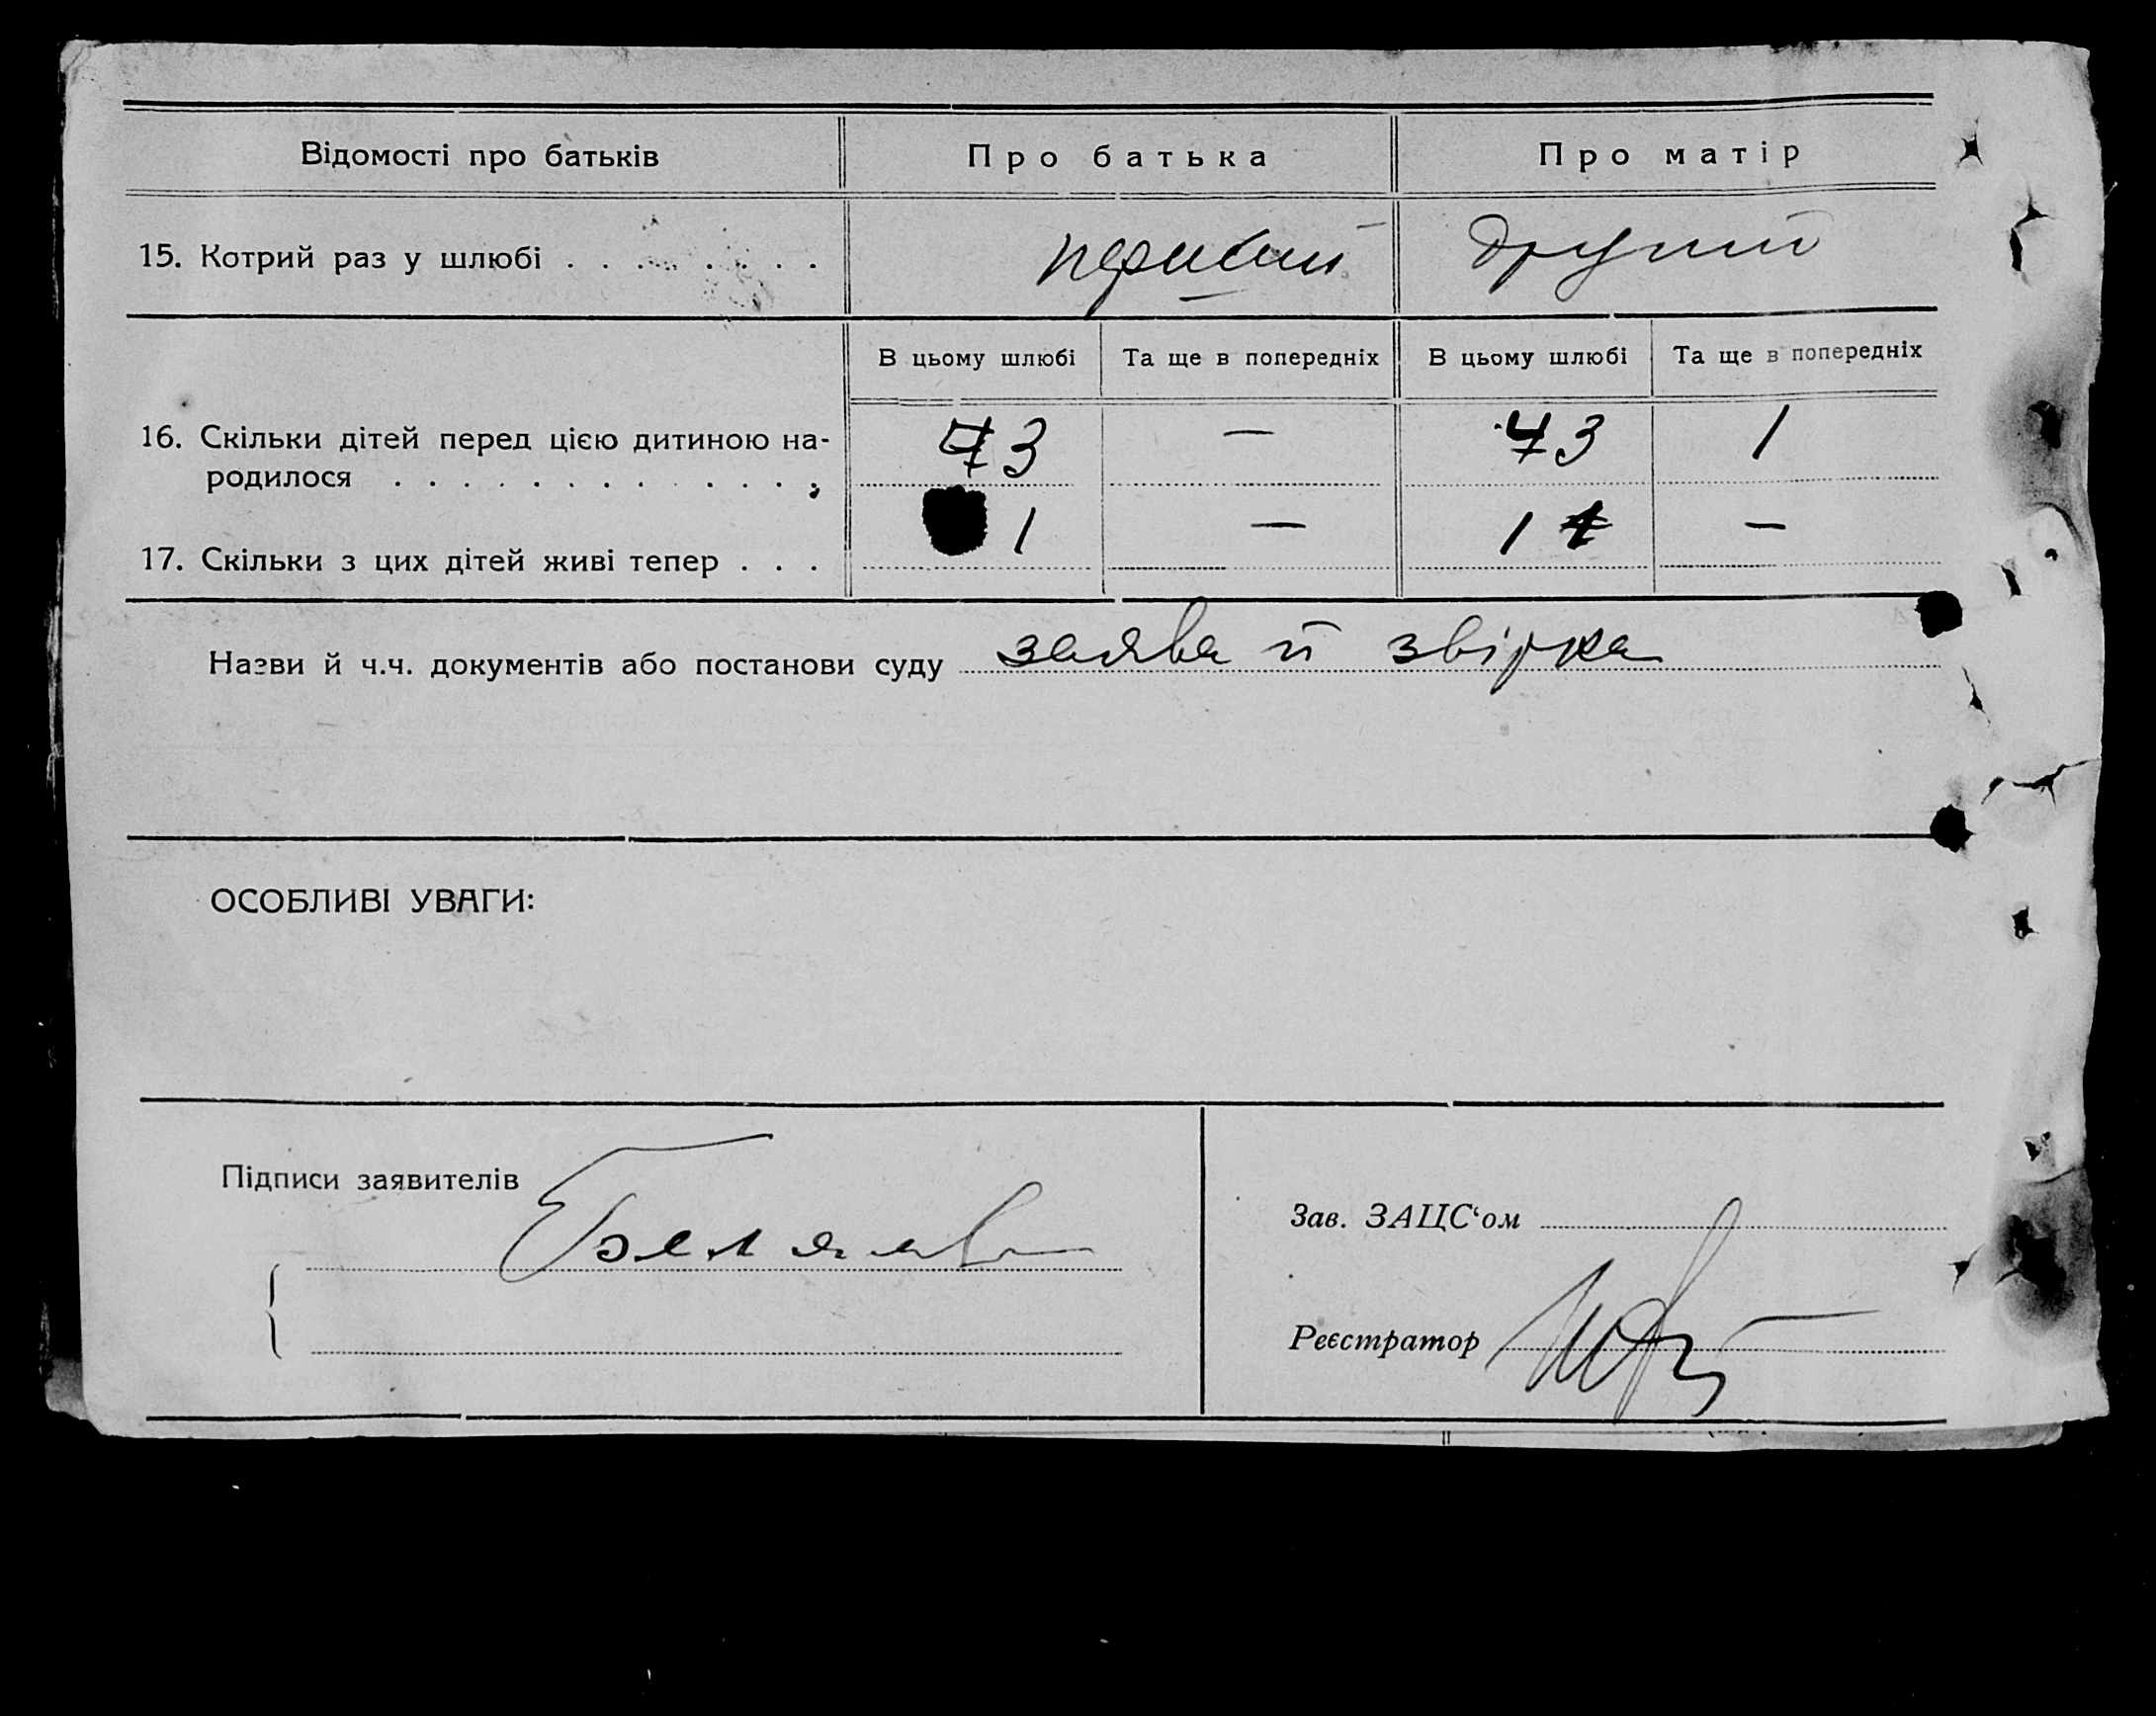 Відомості про батьків Про батька Про матір
15. Котрий раз у шлюбі . . . . . . . . перший другий
В цьому шлюбі Та ще в попередніх В цьому шлюбі Та ще в попередніх
16. Скільки дітей перед цією дитиною на-
родилося . . . . . . . . . . . . . 4 3 — 4 3 1
17. Скільки з цих дітей живі тепер . . . 1 — 1 —
Назви й ч.ч. документів або постанови суду заява й звірка
ОСОБЛИВІ УВАГИ:
Підписи заявителів
Зав. ЗАЦС‘ом
Реєстратор